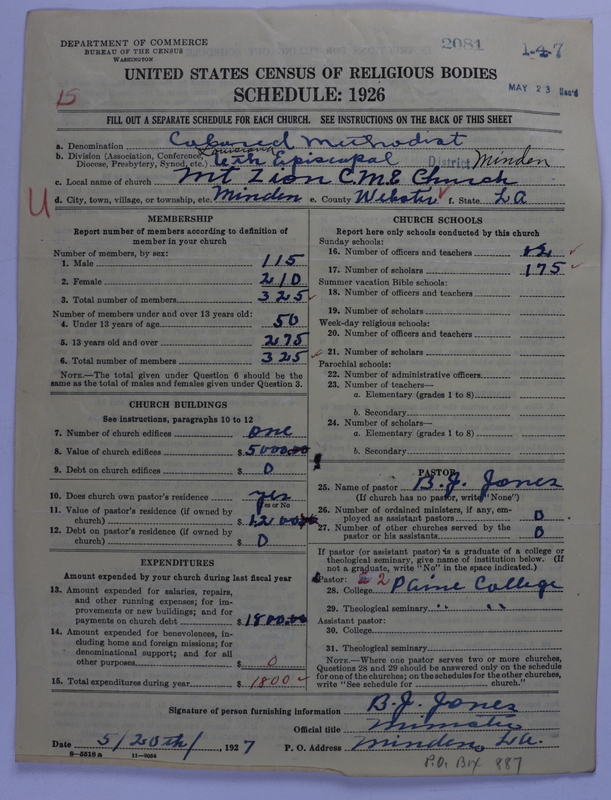 DEPARTMENT OF COMMERCE
BUREAU OF THE CENSUS
WASHINGTON
2081
1-4-7
UNITED STATES CENSUS OF RELIGIOUS BODIES
SCHEDULE: 1926
MAY 23 Rec'd
15
FILL OUT A SEPARATE SCHEDULE FOR EACH CHURCH. SEE INSTRUCTIONS ON THE BACK OF THIS SHEET
a. Denomination Colored Methodist
Louisiana
b. Division (Association, Conference, Diocese, Presbytery, Synod, etc.) Episcopal District Minden
c. Local name of church Mt Zion C.M.E Church
U
d. City, town, village, or township, etc. Minden e. County Webster f. State LA
MEMBERSHIP
Report number of members according to definition of
member in your church
Number of members, by sex:
1. Male 115
2. Female 210
3. Total number of members 325
Number of members under and over 13 years old:
4. Under 13 years of age 50
5. 13 years old and over 275
6. Total number of members 325
NOTE.—The total given under Question 6 should be the
same as the total of males and females given under Question 3.
CHURCH BUILDINGS
See instructions, paragraphs 10 to 12
7. Number of church edifices one
8. Value of church edifices $ 5000.00
9. Debt on church edifices $ 0
10. Does church own pastor's residence yes
Yes or No
11. Value of pastor's residence (if owned by
church) $ 1200
12. Debt on pastor's residence (if owned by
church) $ 0
EXPENDITURES
Amount expended by your church during last fiscal year
13. Amount expended for salaries, repairs,
and other running expenses; for im-
provements or new buildings; and for
payments on church debt $ 1800.00
14. Amount expended for benevolences, in-
cluding home and foreign missions; for
denominational support; and for all
other purposes $ 0
15. Total expenditures during year $ 1800
CHURCH SCHOOLS
Report here only schools conducted by this church
Sunday schools:
16. Number of officers and teachers 12
17. Number of scholars 175
Summer vacation Bible schools:
18. Number of officers and teachers
19. Number of scholars
Week-day religious schools:
20. Number of officers and teachers
21. Number of scholars
Parochial schools:
22. Number of administrative officers
23. Number of teachers—
a. Elementary (grades 1 to 8)
b. Secondary
24. Number of scholars—
a. Elementary (grades 1 to 8)
b. Secondary
PASTOR
25. Name of pastor B.J. Jones
(If church has no pastor, write "None")
26. Number of ordained ministers, if any, em-
ployed as assistant pastors 0
27. Number of other churches served by the
pastor or his assistants 0
If pastor (or assistant pastor) is a graduate of a college or
theological seminary, give name of institution below. (If
not a graduate, write "No" in the space indicated.)
Pastor: 2
28. College Paine College
29. Theological seminary " "
Assistant pastor:
30. College
31. Theological seminary
NOTE.—Where one pastor serves two or more churches,
Questions 28 and 29 should be answered only on the schedule
for one of the churches; on the schedules for the other churches,
write "See schedule for church."
Signature of person furnishing information B.J. Jones
Official title Minister
Date 5/20th/, 1927 P. O. Address Minden, La.
8-5516 a 11-9054
P.O. Box 887